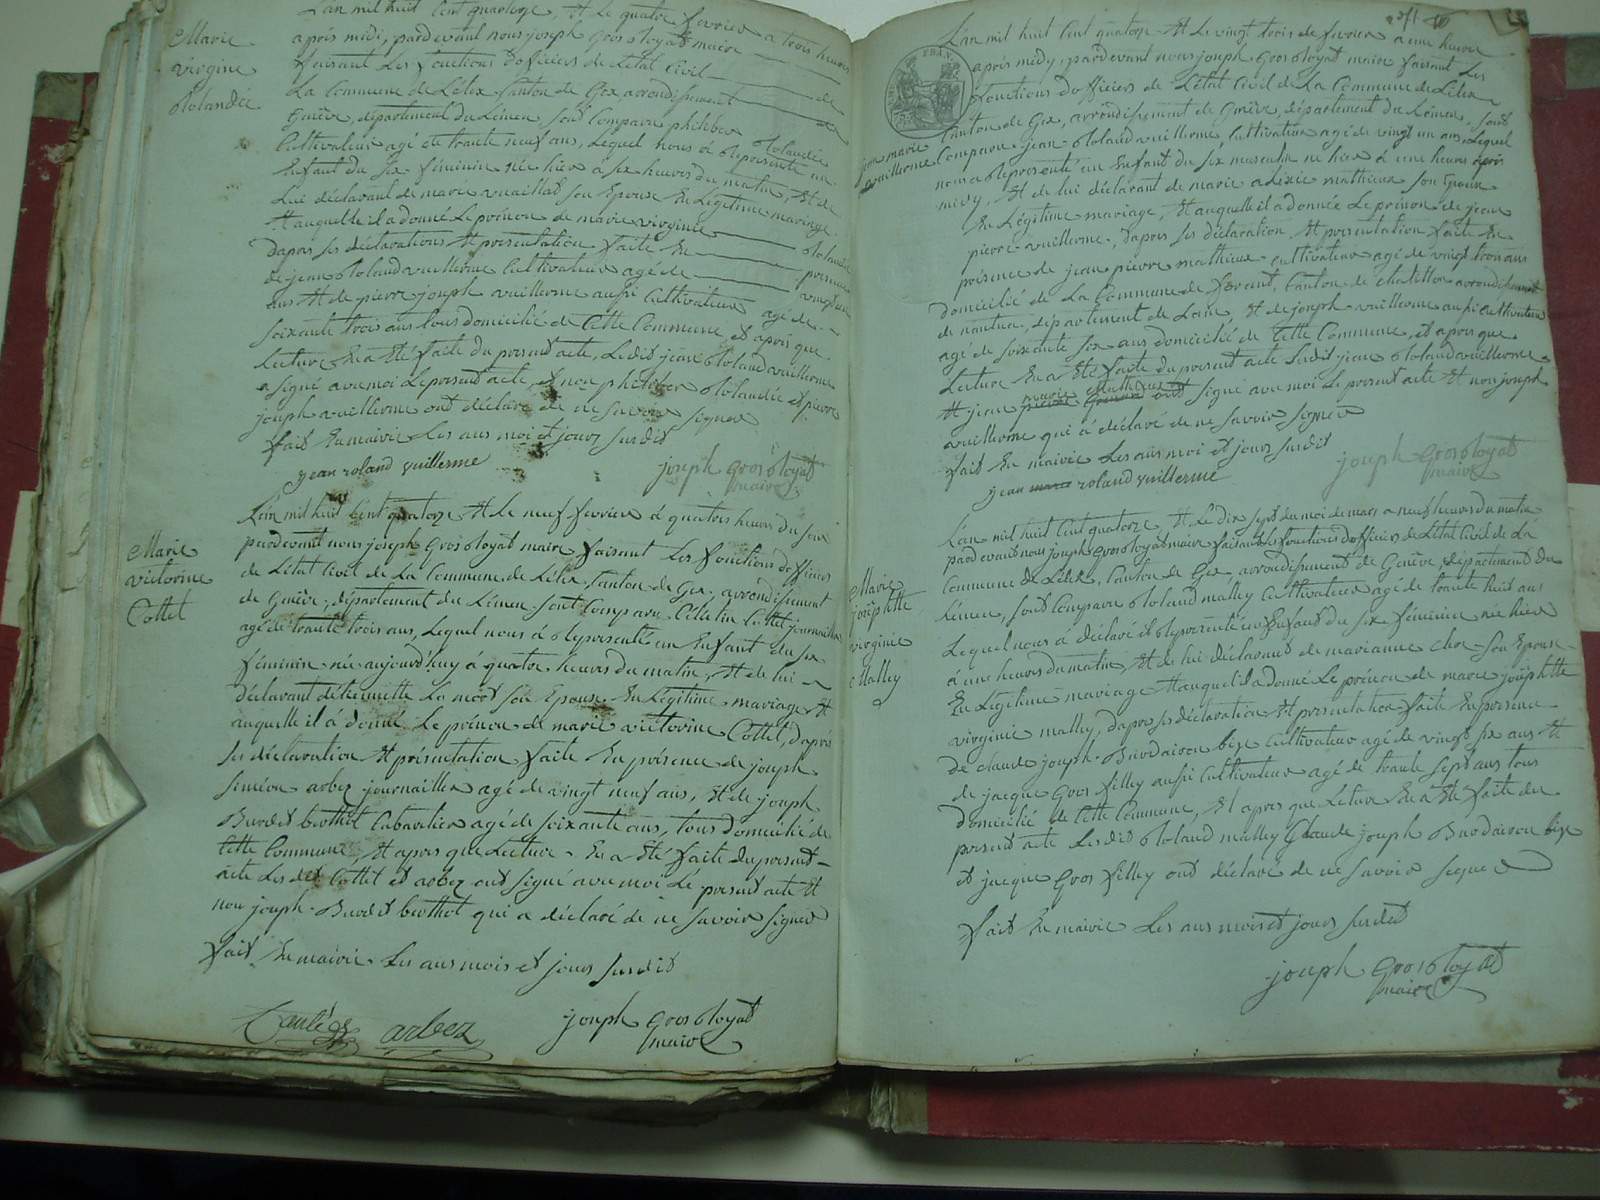 Marie
virginie
Rolandée
L'an mil huit Cent quatorze, Et le quatre fevrier a trois heures
aprés midi, pardevant nous joseph Gros Royat maire
faisant Les fonctions d'officiers de L'état Civil de
La Commune de Lélex Canton de Gex arrondissement de
Genève, département du Léman sont Comparu philiber Rolandée
Cultivateur agé de trante neuf ans, Lequel nous à Représenté un
Enfant du sex féminin née hier a six heures du matin, Et de
Lui déclarant de marie vuaillat son Epouse En Légitime mariage
Et auquelle il a donné Le prénon de marie virginie Rolandée
dapres ses déclarations Et présentation faite En présence
de jean Roland vuillerme Cultivateur agé de vingt un
ans Et de pierre joseph vuillerme aussi Cultivateur agé de
soixante trois ans tous domicilié de Cette Commune et apres que
Lecture En a Eté faite du présent acte, Ledit jean Roland vuillerme
a signé avec moi Le présent acte, et non philiber Rolandée et pierre
joseph vuillerme ont déclaré de ne savoir signer
fait En mairie Les ans moi et jours susdit
jean roland vuillerme joseph Gros Royat
maire
Marie
victorine
Cottet
L'an mil huit Cent quatorze Et Le neuf fevrier à quatres heures du soir
pardevant nous joseph Gros Royat maire faisant Les fonctions d'officiers
de L'état Civil de La Commune de Lélex Canton de Gex arrondissement
de Genève, département du Léman sont Comparu Célestin Cottet journaillier
agé de trante trois ans, Lequel nous à Représenté un Enfant du sex
féminin née aujourd'huy à quatre heures du matin, Et de lui
déclarant d'étiennette La mort son Epouse En Légitime mariage Et
auquelle il à donné Le prénon de marie victorine Cottet, d'après
ses déclaration Et présentation faite En présence de joseph
siméon arbez journaillier agé de vingt neuf ans, Et de joseph
Burdet berthet Cabaretier agé de soixante ans, tous domicilié de
Cette Commune, Et apres que Lecture En a Eté faite du présent
acte Les dit Cottet et arbez ont signé avec moi Le présent acte Et
non joseph Burdet berthet qui a déclaré de ne savoir signer
fait En mairie Les ans mois et jours susdit
arbez joseph Gros Royat
maire
jean marie
vuillerme
L'an mil huit Cent quatorze Et Le vingt trois de fevrier a une heure
après midy, pardevant nous joseph Gros Royat maire faisant Les
fonctions d'officiers de L'état Civil de La Commune de Lélex
Canton de Gex, arrondissement de Genève, département du Léman, sont
Comparu jean Roland vuillerme, Cultivateur agé de vingt un ans, Lequel
nous a Représenté un Enfant du sex masculin né hier à une heure après
midy, Et de lui déclarant de marie alexie mathieux son Epouse
En Légitime mariage, Et auquelle il a donnée Le prénon de jean
pierre vuillerme, dapres ses déclaration Et présentation faite En
présence de jean pierre mathieux Cultivateur agé de vingt trois ans
domicilié de La Commune de forent, Canton de Chatillon arrondissement
de nantua, département de Lain, Et de joseph vuillerme aussi Cultivateur
agé de soixante six ans domicilié de Cette Commune, et apres que
Lecture En a Eté faite du présent acte Ledit jean Roland vuillerme
marie mathieux
Et jean pierre ont signé avec moi Le présent acte Et non joseph
vuillerme qui à déclaré de ne savoir signer
fait En mairie Les ans moi et jours susdit
jean marie roland vuillerme joseph Gros Royat
maire
Marie
josephtte
virginie
Malley
L'an mil huit Cent quatorze, Et Le dix sept du moi de mars a neuf heures du matin
pardevant nous joseph Gros Royat maire faisant Les fonctions d'officiers de L'état Civil de La
Commune de Lélex, Canton de Gex arrondissement de Genève, département du
Léman, sont Comparu Roland malley Cultivateur agé de trante huit ans
Lequel nous à déclaré et Représenté un Enfant du sex féminin née hier
à une heure du matin, Et de lui déclarant de marianne son Epouse
En Légitime mariage Et auquel il a donné Le prénon de marie josephtte
virginie malley, dapres ses déclaration Et présentation faite En présence
de claude joseph Burdairon bize Cultivateur agé de vingt six ans Et
de jacque Gros filley aussi Cultivateur agé de trante sept ans tous
domicilié de Cette Commune, Et apres que Lecture En a Eté faite du
présent acte Les dit Roland malley Claude joseph Burdairon bize
et jacque Gros filley ont déclaré de ne savoir signer
fait En mairie Les ans mois et jours susdit
joseph Gros Royat
maire